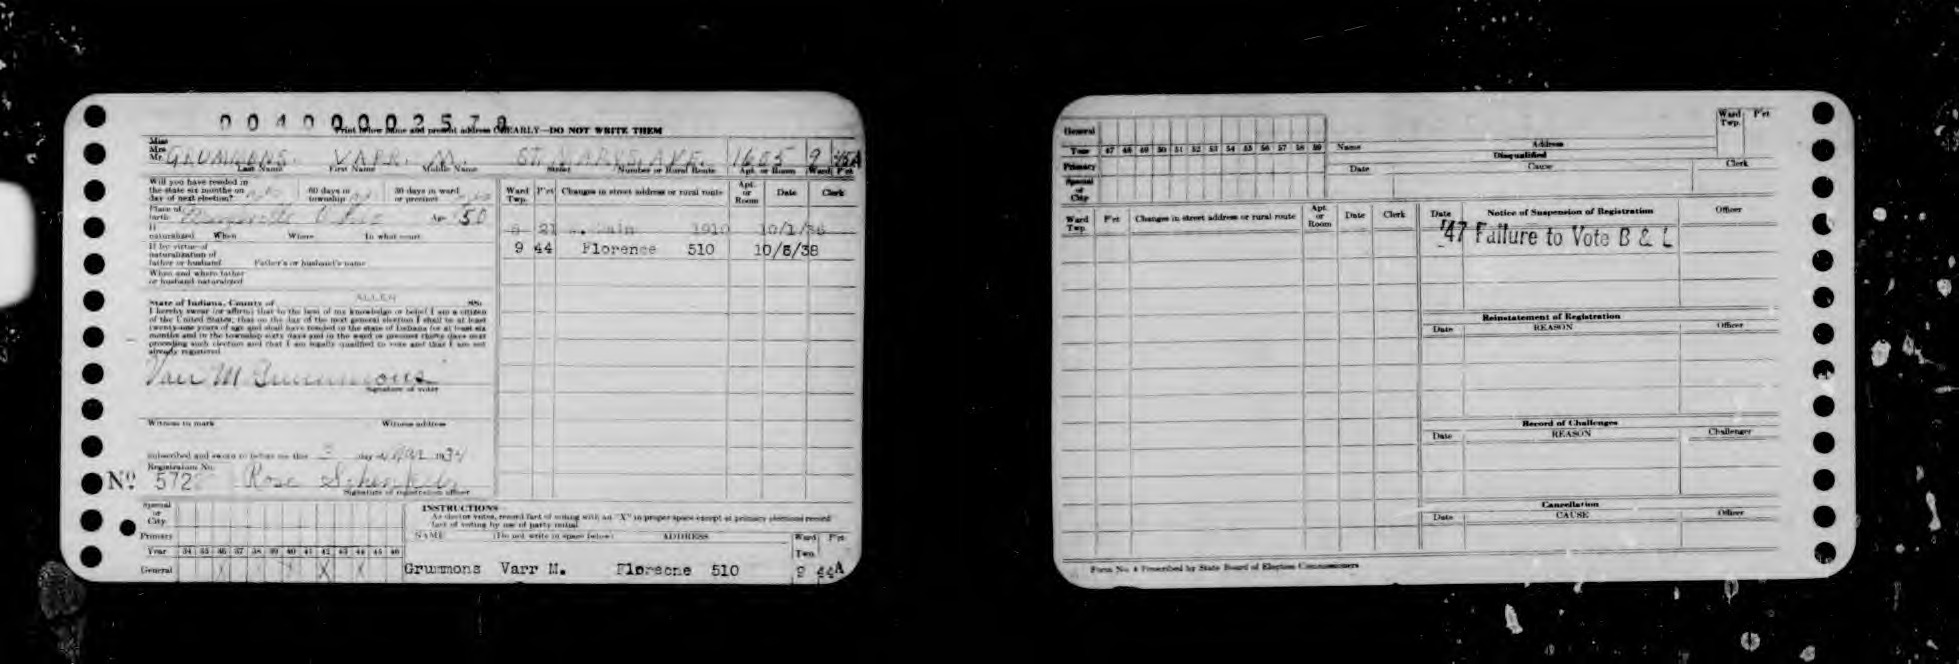 0040002579
Print below name and present address CLEARLY—DO NOT WRITE THEM
Miss
Mrs.
Mr. GRUMMONS. VARR. M. ST. MARYS. AVE. 1605 9 45A
Last Name First Name Middle Name Street Number or Rural Route Apt. or Room Ward P'ct
Will you have resided in
the state six months on
day of next election?
60 days in
township
30 days in ward
or precinct
Place of
birth Ohio Age 50
If
naturalized When Where In what court
If by virtue of
naturalization of
father or husband Father's or husband's name
When and where father
or husband naturalized
State of Indiana, County of ALLEN SS:
I hereby swear (or affirm) that to the best of my knowledge or belief I am a citizen
of the United States; that on the day of the next general election I shall be at least
twenty-one years of age and shall have resided in the state of Indiana for at least six
months and in the township sixty days and in the ward or precinct thirty days next
preceding such election and that I am legally qualified to vote and that I am not
already registered
Varr M. Grummons
Signature of voter
Witness to mark Witness address
Subscribed and sworn to before me this 3 day of Mar 1934
Registration No.
No. 572 Rose
Signature of registration officer
Ward
Twp. P'ct Changes in street address or rural route Apt.
or
Room Date Clerk
21 Main 1910 10/1/36
9 44 Florence 510 10/8/38
Special
or
City
Primary
Year 34 35 36 37 38 39 40 41 42 43 44 45 46
General X X
INSTRUCTIONS
As elector votes, record fact of voting with an "X" in proper space except at primary elections record
fact of voting by use of party initial
NAME (Do not write in space below) ADDRESS Ward
Twp. P'ct
Grummons Varr M. Florecne 510 9 44A
General
Year 47 48 49 50 51 52 53 54 55 56 57 58 59
Primary
Special
or
City
Name Address
Ward
Twp. P'ct
Disqualified
Date Cause Clerk
Ward
Twp. P'ct Changes in street address or rural route Apt.
or
Room Date Clerk
Date Notice of Suspension of Registration Officer
'47 Failure to Vote B & L
Reinstatement of Registration
Date REASON Officer
Record of Challenges
Date REASON Challenger
Cancellation
Date CAUSE Officer
Form No. 4 Prescribed by State Board of Election Commissioners